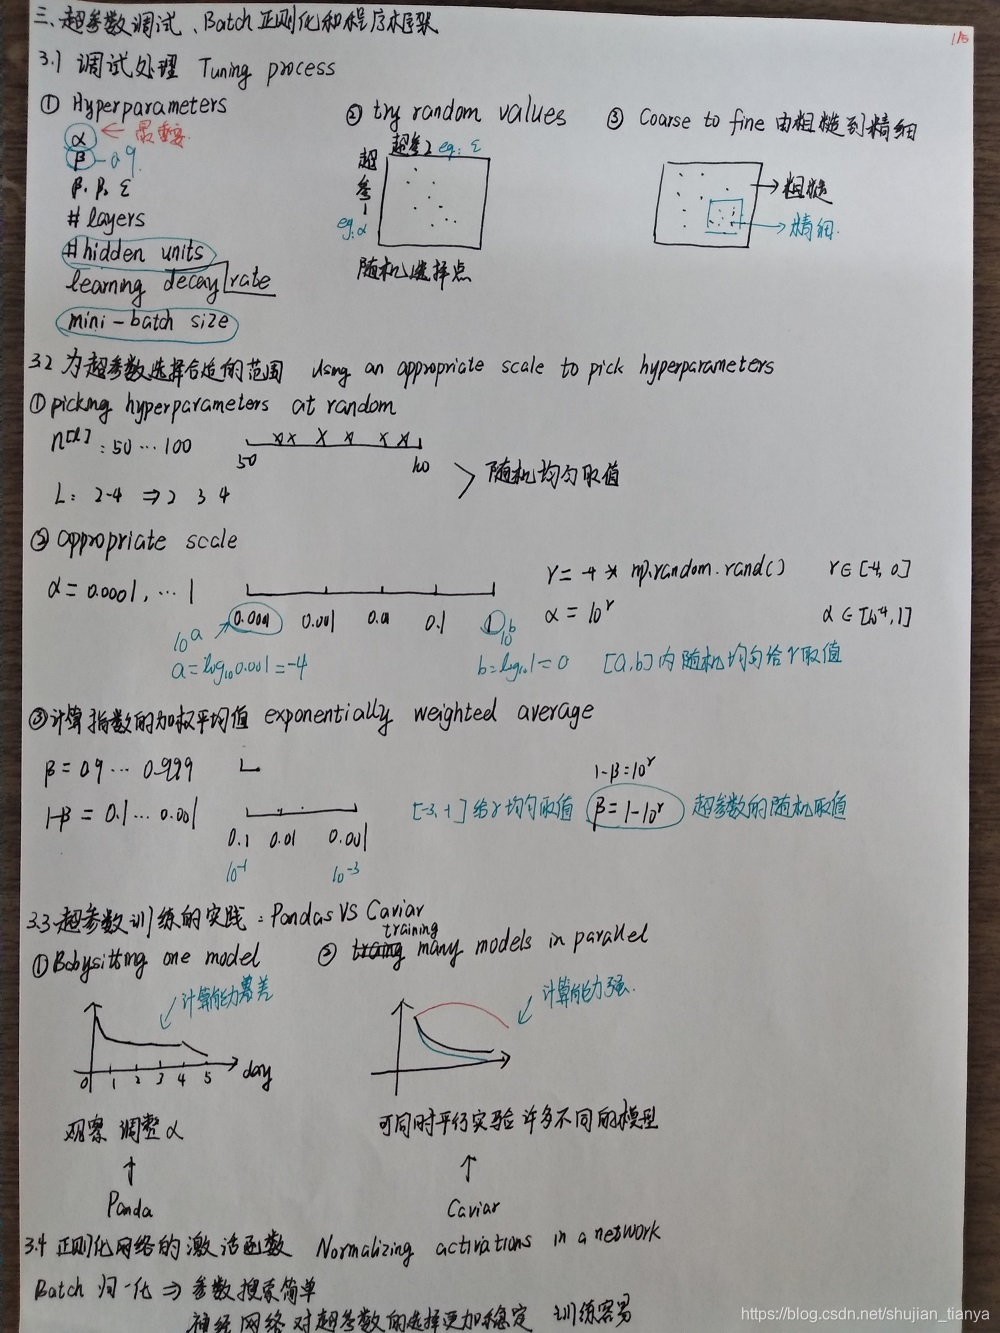 三、超参数调试、Batch正则化和程序框架
1/5
3.1 调试处理 Tuning process
① Hyperparameters
α ← 最重要
β - 0.9
β1 β2 ε
# layers
# hidden units
learning decay rate
mini-batch size
② try random values
超参2 eg: ε
超参一
eg: α
随机选择点
③ Coarse to fine 由粗糙到精细
→ 粗糙
→ 精细
3.2 为超参数选择合适的范围 Using an appropriate scale to pick hyperparameters
① picking hyperparameters at random
n[l] : 50 ... 100
50 100
L: 2-4 ⇒ 2 3 4
随机均匀取值
② appropriate scale
α = 0.0001, ... 1
0.0001 0.001 0.01 0.1 1
10^a 10^b
a = log10 0.001 = -4
b = log10 1 = 0
r = -4 * np.random.rand() r ∈ [-4, 0]
α = 10^r α ∈ [10^-4, 1]
[a,b]内随机均匀给r取值
③ 计算指数的加权平均值 exponentially weighted average
β = 0.9 ... 0.999
1-β = 0.1 ... 0.001
0.1 0.01 0.001
10^-1 10^-3
1-β = 10^r
[-3,-1]给r均匀取值 β = 1-10^r 超参数的随机取值
3.3 超参数训练的实践: Pandas VS Caviar
① Babysitting one model
② training many models in parallel
计算能力差
0 1 2 3 4 5 day
观察 调整α
↑
Panda
计算能力强
可同时平行实验许多不同的模型
↑
Caviar
3.4 正则化网络的激活函数 Normalizing activations in a network
Batch 归一化 ⇒ 参数搜索简单
神经网络对超参数的选择更加稳定 训练容易
https://blog.csdn.net/shujian_tianya